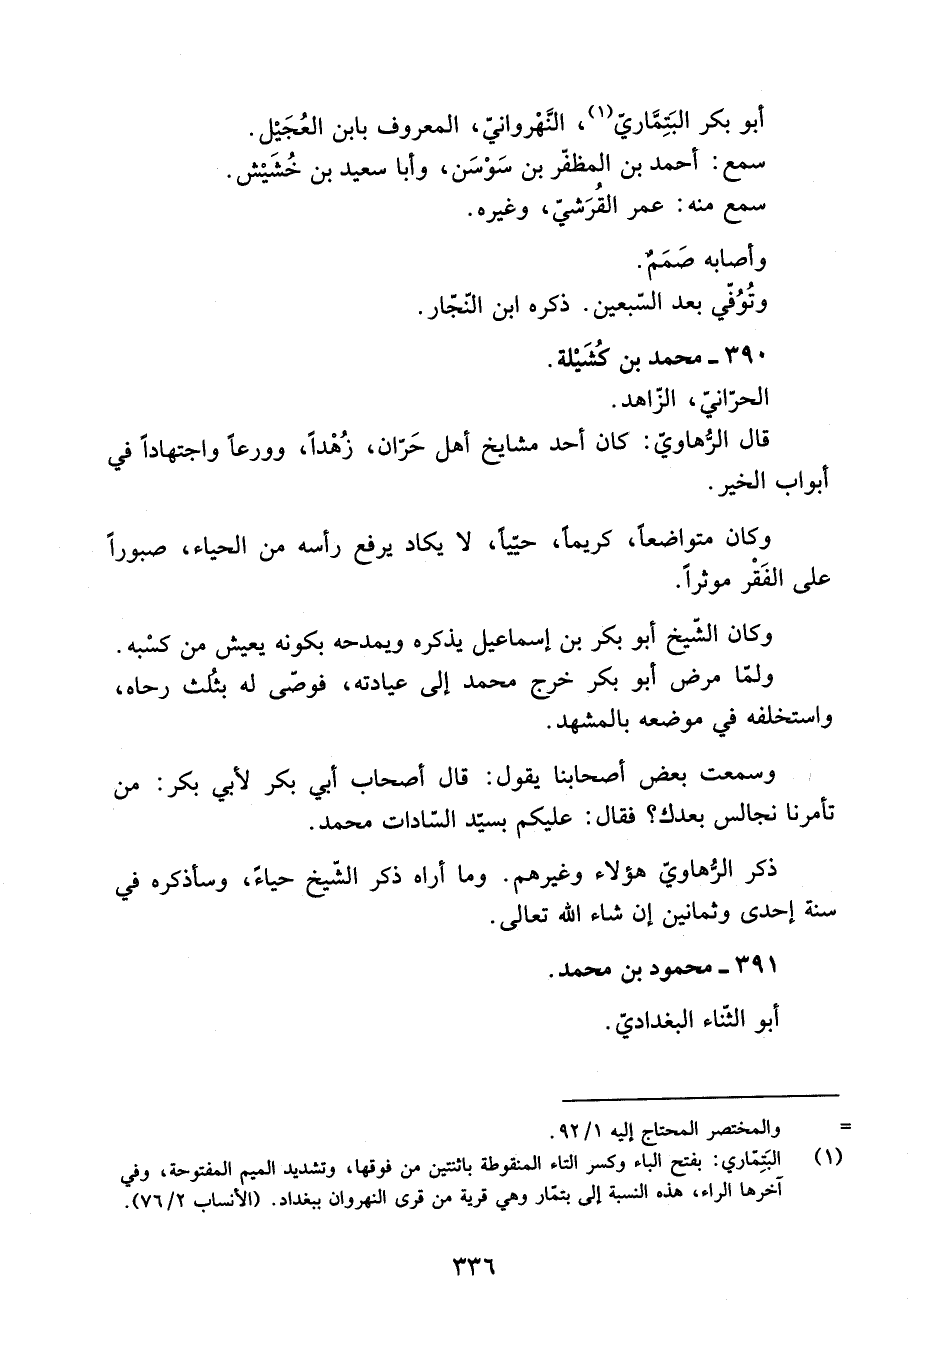 أبو بكر البَتِمَّاريّ(١)، النَّهْروانيّ، المعروف بابن العُجَيْل.
سمع: أحمد بن المظفّر بن سَوْسَن، وأبا سعيد بن خُشَيْش.
سمع منه: عمر القُرَشيّ، وغيره.
وأصابه صَمَمٌ.
وتُوُفّي بعد السّبعين. ذكره ابن النّجّار.
٣٩٠ ـ محمد بن كُشَيْلة.
الحرّانيّ، الزّاهد.
قال الرُّهاويّ: كان أحد مشايخ أهل حَرّان، زُهْداً، وورعاً واجتهاداً في
أبواب الخير.
وكان متواضعاً، كريماً، حيّياً، لا يكاد يرفع رأسه من الحياء، صبوراً
على الفَقْر موثراً.
وكان الشّيخ أبو بكر بن إسماعيل يذكره ويمدحه بكونه يعيش من كسْبه.
ولمّا مرض أبو بكر خرج محمد إلى عيادته، فوصّى له بثُلث رحاه،
واستخلفه في موضعه بالمشهد.
وسمعت بعض أصحابنا يقول: قال أصحاب أبي بكر لأبي بكر: من
تأمرنا نجالس بعدك؟ فقال: عليكم بسيّد السّادات محمد.
ذكر الرُّهاويّ هؤلاء وغيرهم. وما أراه ذكر الشّيخ حياءً، وسأذكره في
سنة إحدى وثمانين إن شاء الله تعالى.
٣٩١ ـ محمود بن محمد.
أبو الثّناء البغداديّ.
= والمختصر المحتاج إليه ٩٢/١.
(١) البَتِمّاري: بفتح الباء وكسر التاء المنقوطة باثنتين من فوقها، وتشديد الميم المفتوحة، وفي
آخرها الراء، هذه النسبة إلى بتمّار وهي قرية من قرى النهروان ببغداد. (الأنساب ٧٦/٢).
٣٣٦